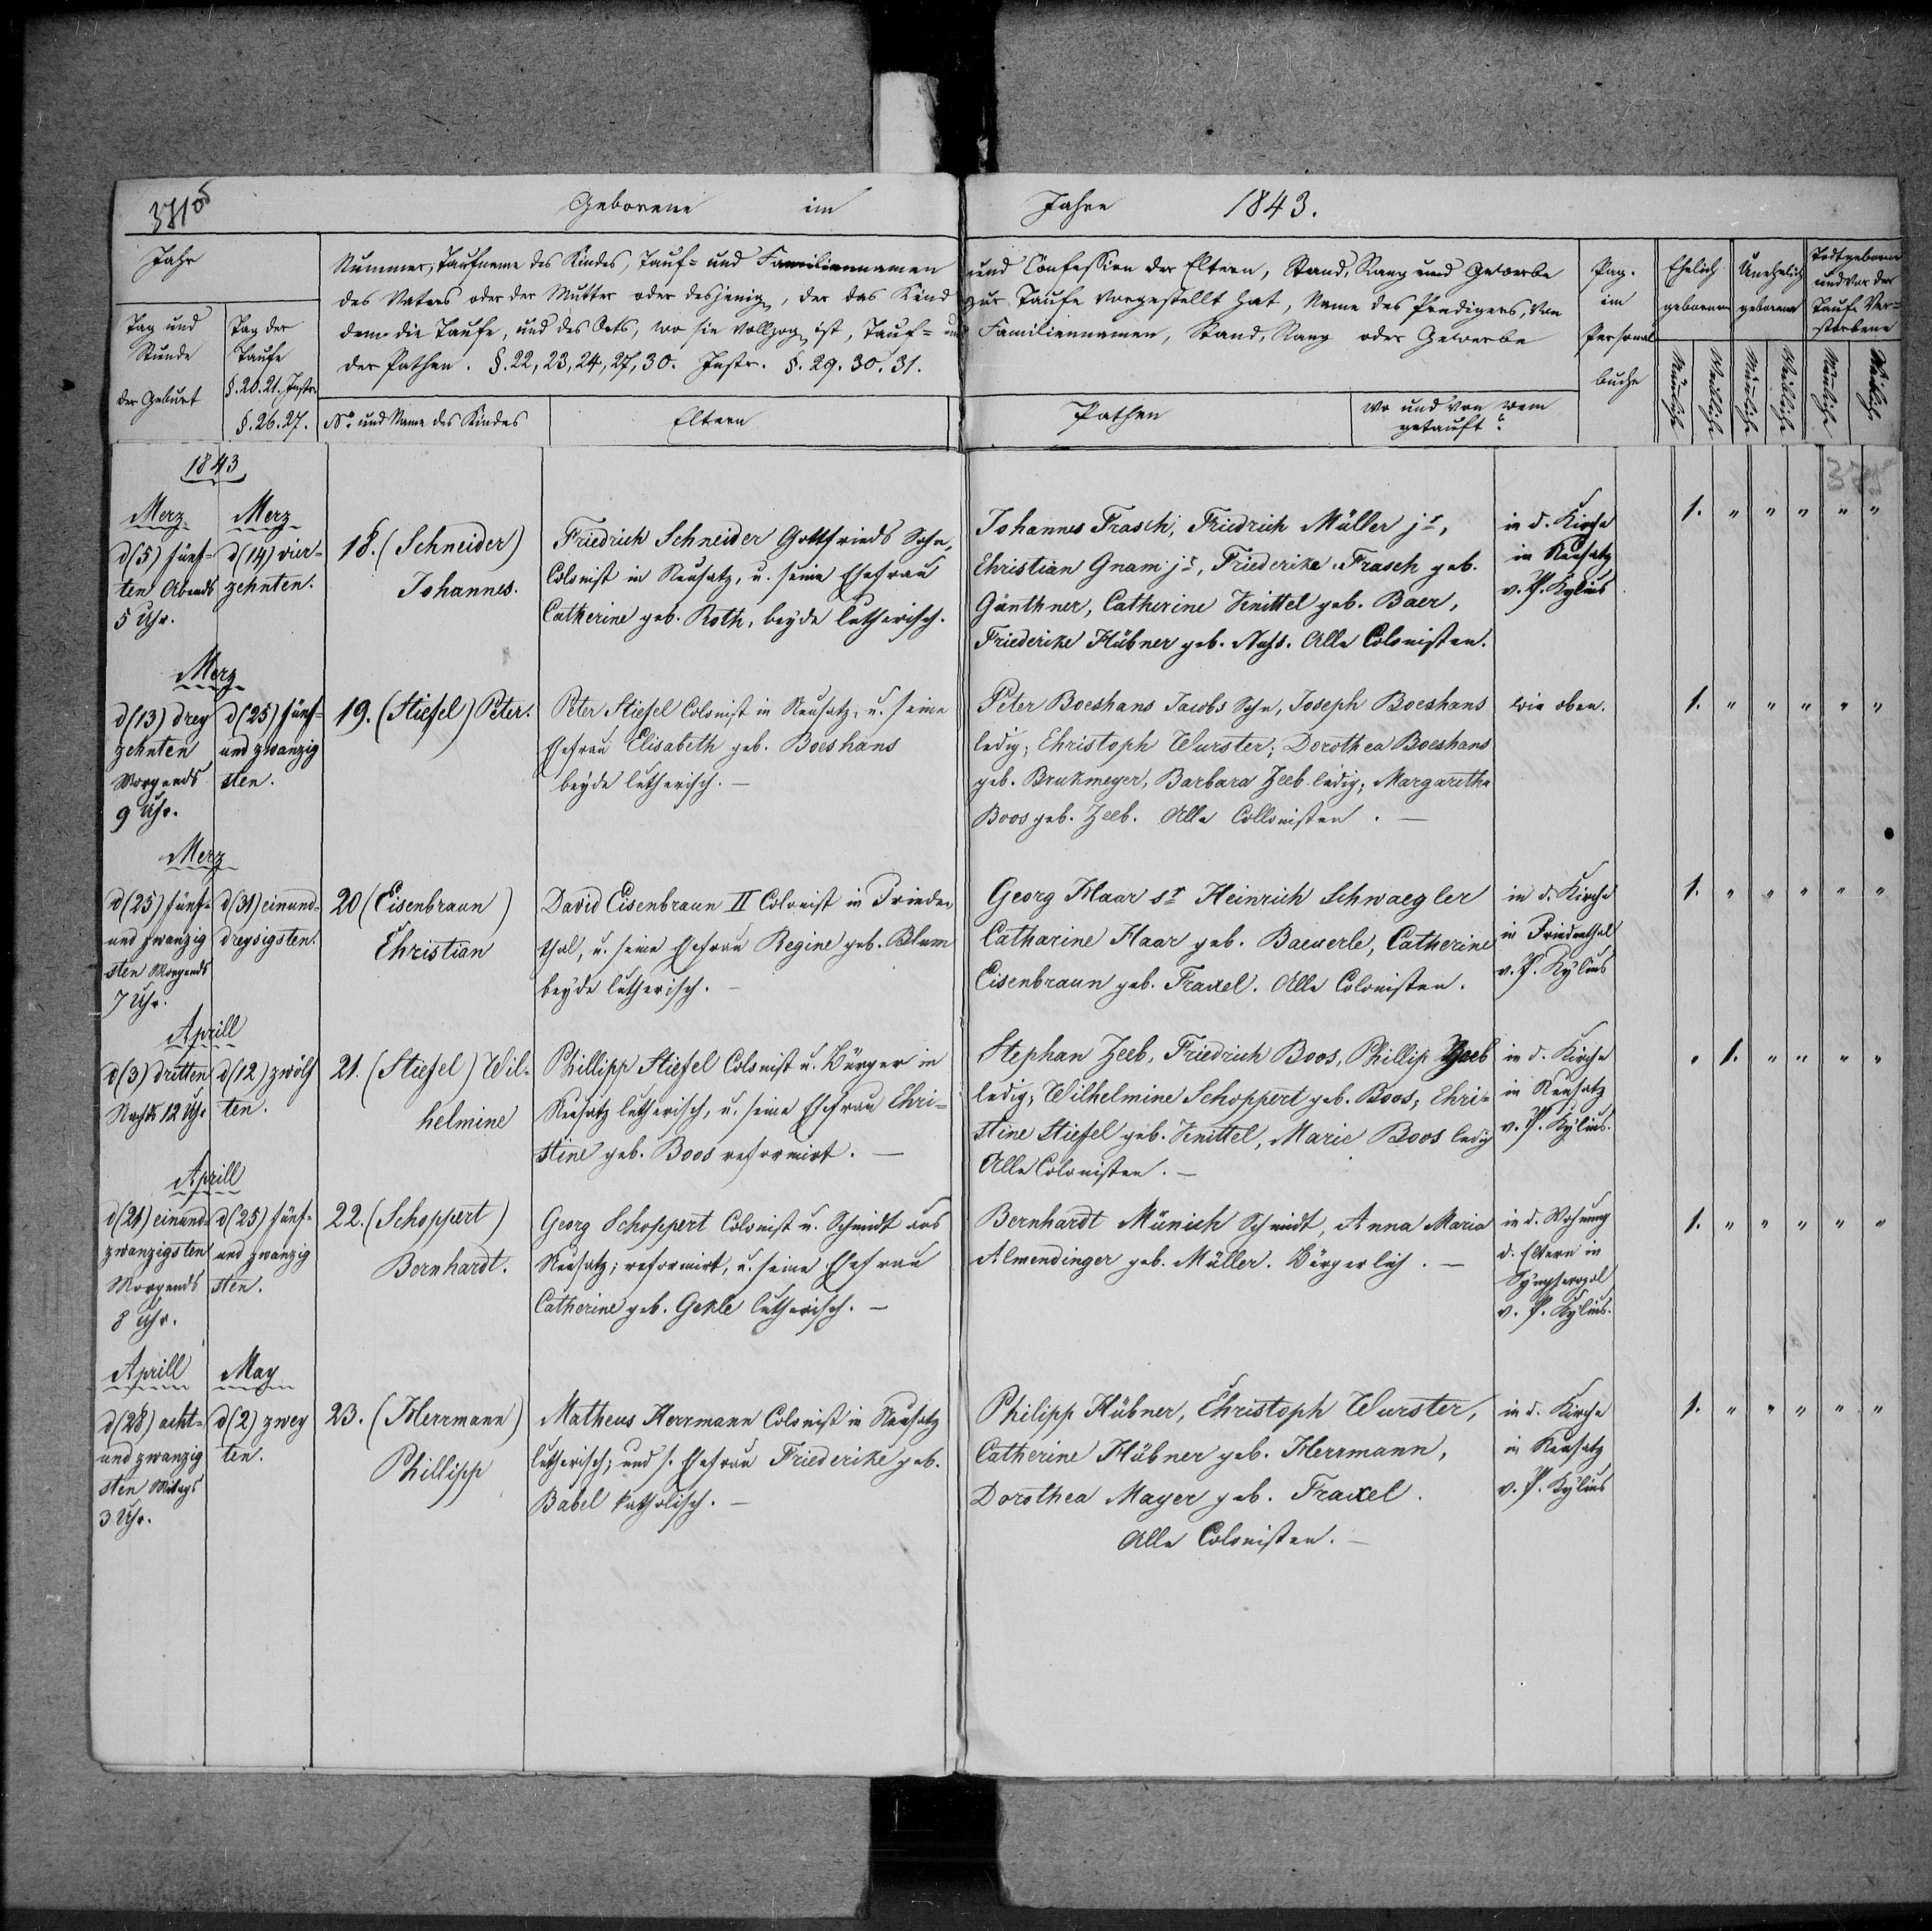 Geborene im Jahre 1843.
Jahr
Tag und Stunde der Geburt
Tag der Taufe
§. 20. 21. Instr. §. 26. 27.
Nummer, Taufname des Kindes, Tauf= und Familiennamen und Confession der Eltern, Stand, Rang und Gewerbe
des Vaters oder der Mutter oder desjenig., der das Kind zur Taufe vorgestellt hat, Name des Predigers, von
dem die Taufe, und des Orts, wo sie vollzog. ist, Tauf= und Familiennamen, Stand, Rang oder Gewerbe
der Pathen. §. 22, 23, 24, 27, 30. Instr. §. 29. 30. 31.
No. und Name des Kindes
Eltern
Pathen
wo und von wem getauft?
Pag. im Personal buche
Ehelich geborenen
Unehelich geborene
Todtgeborene und vor der Taufe Ver= storbene
Männliche
Weibliche
Männliche
Weibliche
Männliche
Weibliche
1843
Merz
d (5) fünf=
ten Abends
5 Uhr.
Merz
d (14) vier=
zehnten.
18. (Schneider)
Johannes.
Friedrich Schneider Gottfrieds Sohn,
Colonist in Neusatz, u. seine Ehefrau
Catherine geb. Roth, beyde lutherisch.
Johannes Frasch, Friedrich Müller jr,
Christian Gnam jr, Friederike Frasch geb.
Günthner, Catherine Knittel geb. Baer,
Friederike Hübner geb. Nuss. Alle Colonisten.
in d. Kirche
in Neusatz
v. P. Kylius
1. " " " " "
Merz
d (13) drey
zehnten
Morgends
9 Uhr.
d (25) fünf=
und zwanzig
sten.
19. (Stiefel) Peter.
Peter Stiefel Colonist in Neusatz, u. seine
Ehefrau Elisabeth geb. Boeshans
beyde lutherisch. —
Peter Boeshans Jacobs Sohn, Joseph Boeshans
ledig; Christoph Wurster; Dorothea Boeshans
geb. Brukmeyer, Barbara Zeeb ledig; Margaretha
Boos geb. Zeeb. Alle Collonisten. —
wie oben.
1. " " " " "
Merz
d (25) fünf=
und zwanzig
sten Morgends
7 Uhr.
d (31) einund=
dreysigsten.
20 (Eisenbraun)
Christian
David Eisenbraun II Colonist in Frieden
thal, u. seine Ehefrau Regine geb. Blum
beyde lutherisch. —
Georg Haar sr Heinrich Schwaegler
Catharine Haar geb. Baeuerle, Catherine
Eisenbraun geb. Fraxel. Alle Colonisten.
in d. Kirche
in Friedenthal
v. P. Kylius
1. " " " " "
Aprill
d (3) dritten
Nachts 12 Uhr
d (12) zwölf
ten.
21. (Stiefel) Wil=
helmine
Phillipp Stiefel Colonist u. Bürger in
Neusatz lutherisch, u. seine Ehefrau Chri=
stine geb. Boos reformirt. —
Stephan Zeeb, Friedrich Boos, Phillip Zeeb
ledig; Wilhelmine Schoppert geb. Boos; Chri=
stine Stiefel geb. Knittel, Marie Boos ledig
Alle Colonisten. —
in d. Kirche
in Neusatz
v. P. Kylius.
" 1. " " " "
Aprill
d (21) einund=
zwanzigsten
Morgends
8 Uhr.
d (25) fünf=
und zwanzig
sten.
22. (Schoppert)
Bernhardt.
Georg Schoppert Colonist u. Schmidt aus
Neusatz; reformirt, u. seine Ehefrau
Catherine geb. Gekle lutherisch. —
Bernhardt Münich Schmidt, Anna Maria
Almendinger geb. Müller. Bürgerlich. —
in d. Wohnung
d. Eltern in
Sympheropol
v. P. Kylius.
1. " " " " "
Aprill
d (28) acht=
und zwanzig
sten Mittags
3 Uhr.
May
d (2) zwey
ten.
23. (Herrmann)
Phillipp
Matheus Herrmann Colonist in Neusatz
lutherisch; und s. Ehefrau Friederike geb.
Babel katholisch. —
Philipp Hübner, Christoph Wurster,
Catherine Hübner geb. Herrmann,
Dorothea Mayer geb. Fraxel.
Alle Colonisten. —
in d. Kirche
in Neusatz
v. P. Kylius
1. " " " " "